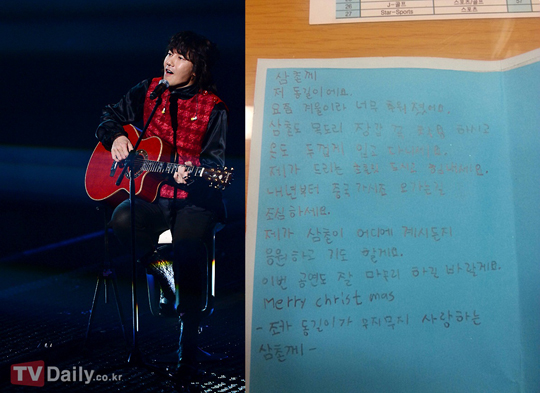 J-골프 스포츠/골프
27 Star-Sports 스포츠
삼촌께
저 동길이에요.
요즘 겨울이라 너무 추워졌어요.
삼촌도 목도리 장갑 꼭 하시고
옷도 두껍게 입고
제가 드리는
내년부터
조심하세요.
제가 삼촌이 어디에 계시든지
응원하고 기도 할게요.
이번 공연도 잘 마무리 하길 바랄게요.
Merry christ mas
- 조카 동길이가 무지무지 사랑하는
삼촌께 -
TVDaily.co.kr